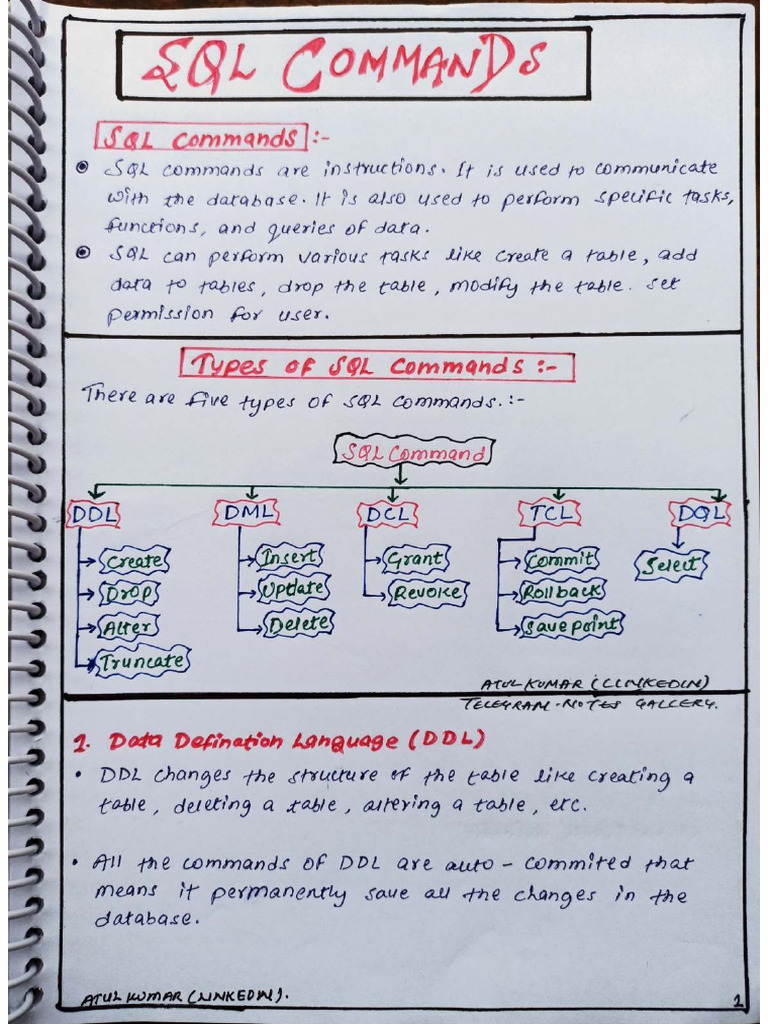 SQL COMMANDS
SQL Commands :-
SQL commands are instructions. It is used to communicate
with the database. It is also used to perform specific tasks,
functions, and queries of data.
SQL can perform various tasks like create a table, add
data to tables, drop the table, modify the table. set
permission for user.
Types of SQL Commands :-
There are five types of SQL commands.:-
SQL Command
DDL DML DCL TCL DQL
Create Insert Grant Commit Select
Drop Update Revoke Rollback
Alter Delete Save point
Truncate
ATUL KUMAR (LINKEDIN)
TELEGRAM-NOTES GALLERY.
1. Data Defination Language (DDL)
• DDL changes the structure of the table like creating a
table, deleting a table, altering a table, etc.
• All the commands of DDL are auto - commited that
means it permanently save all the changes in the
database.
ATUL KUMAR (LINKEDIN).
1